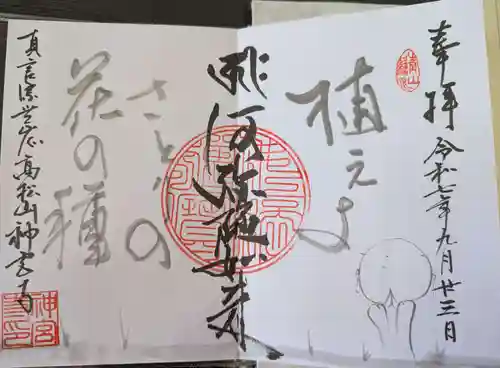 奉拝 令和七年九月廿三日
植えよ
さとりの
花の種
阿弥陀如来
真言宗 高松山神宮寺
神宮寺印